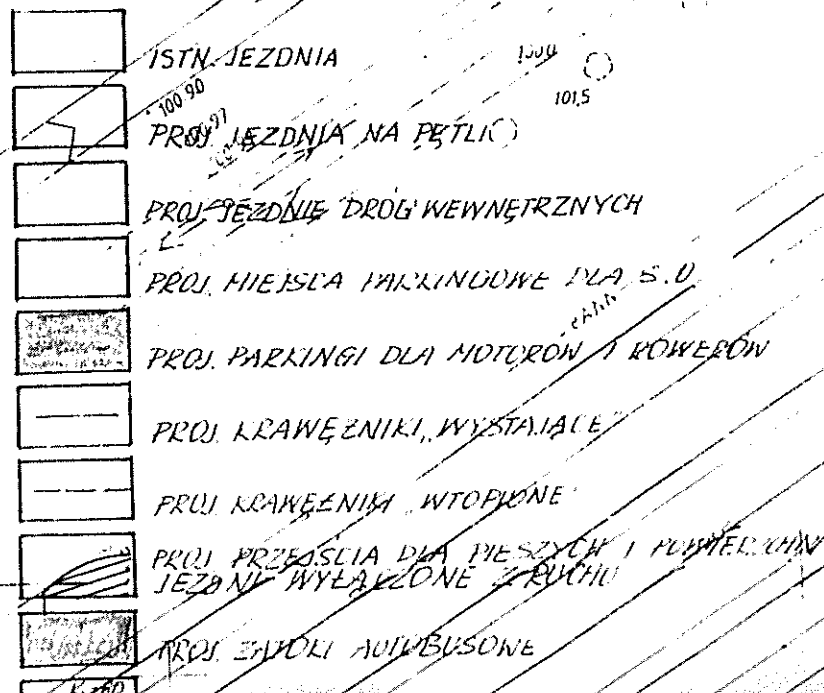 ISTN. JEZDNIA
101,5
100.90
PROJ. JEZDNIA NA PĘTLI
PROJ. JEZDNIE DRÓG WEWNĘTRZNYCH
PROJ. MIEJSCA PARKINGOWE DLA S.O
PROJ. PARKINGI DLA MOTORÓW I ROWERÓW
PROJ. KRAWĘŻNIKI „WYSTAJĄCE"
PROJ. KRAWĘŻNIKI „WTOPIONE"
PROJ. PRZEJŚCIA DLA PIESZYCH I POWIERZCHNI
JEZDNI WYŁĄCZONE Z RUCHU
PROJ. ZATOKI AUTOBUSOWE